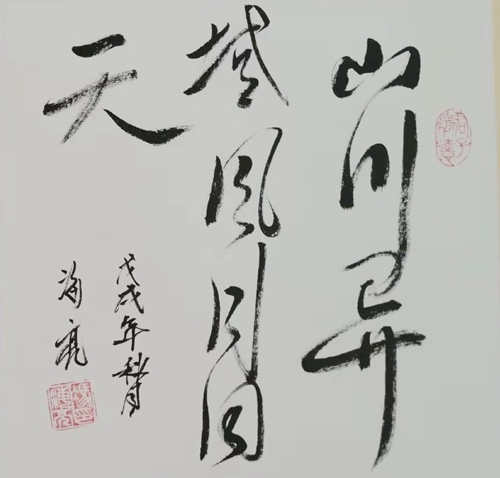 山川异
域风月同
天
戊戌年秋月
海亮